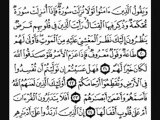 وَيَقُولُ الَّذِينَ ءَامَنُوا لَوْلَا نُزِّلَتْ سُورَةٌ فَإِذَا أُنزِلَتْ سُورَةٌ
مُّحْكَمَةٌ وَذُكِرَ فِيهَا الْقِتَالُ رَأَيْتَ الَّذِينَ فِي قُلُوبِهِم مَّرَضٌ
يَنظُرُونَ إِلَيْكَ نَظَرَ الْمَغْشِيِّ عَلَيْهِ مِنَ الْمَوْتِ فَأَوْلَىٰ لَهُمْ
طَاعَةٌ وَقَوْلٌ مَّعْرُوفٌ فَإِذَا عَزَمَ الْأَمْرُ فَلَوْ صَدَقُوا اللَّهَ
لَكَانَ خَيْرًا لَّهُمْ فَهَلْ عَسَيْتُمْ إِن تَوَلَّيْتُمْ أَن تُفْسِدُوا فِي
الْأَرْضِ وَتُقَطِّعُوا أَرْحَامَكُمْ أُولَٰئِكَ الَّذِينَ لَعَنَهُمُ اللَّهُ
فَأَصَمَّهُمْ وَأَعْمَىٰ أَبْصَارَهُمْ أَفَلَا يَتَدَبَّرُونَ الْقُرْءَانَ